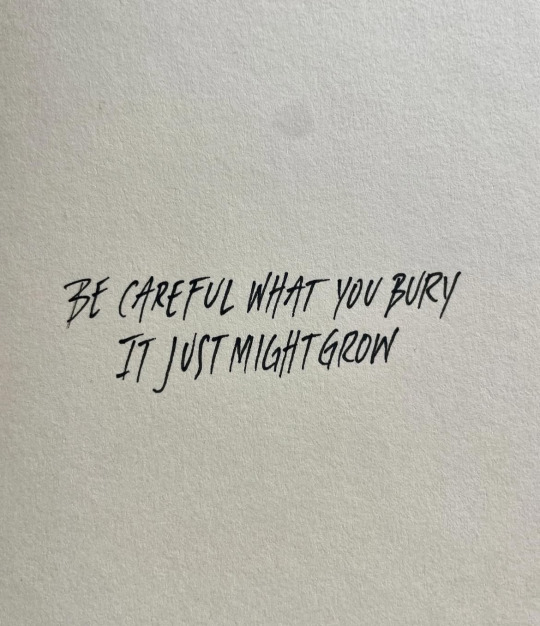 BE CAREFUL WHAT YOU BURY
IT JUST MIGHT GROW